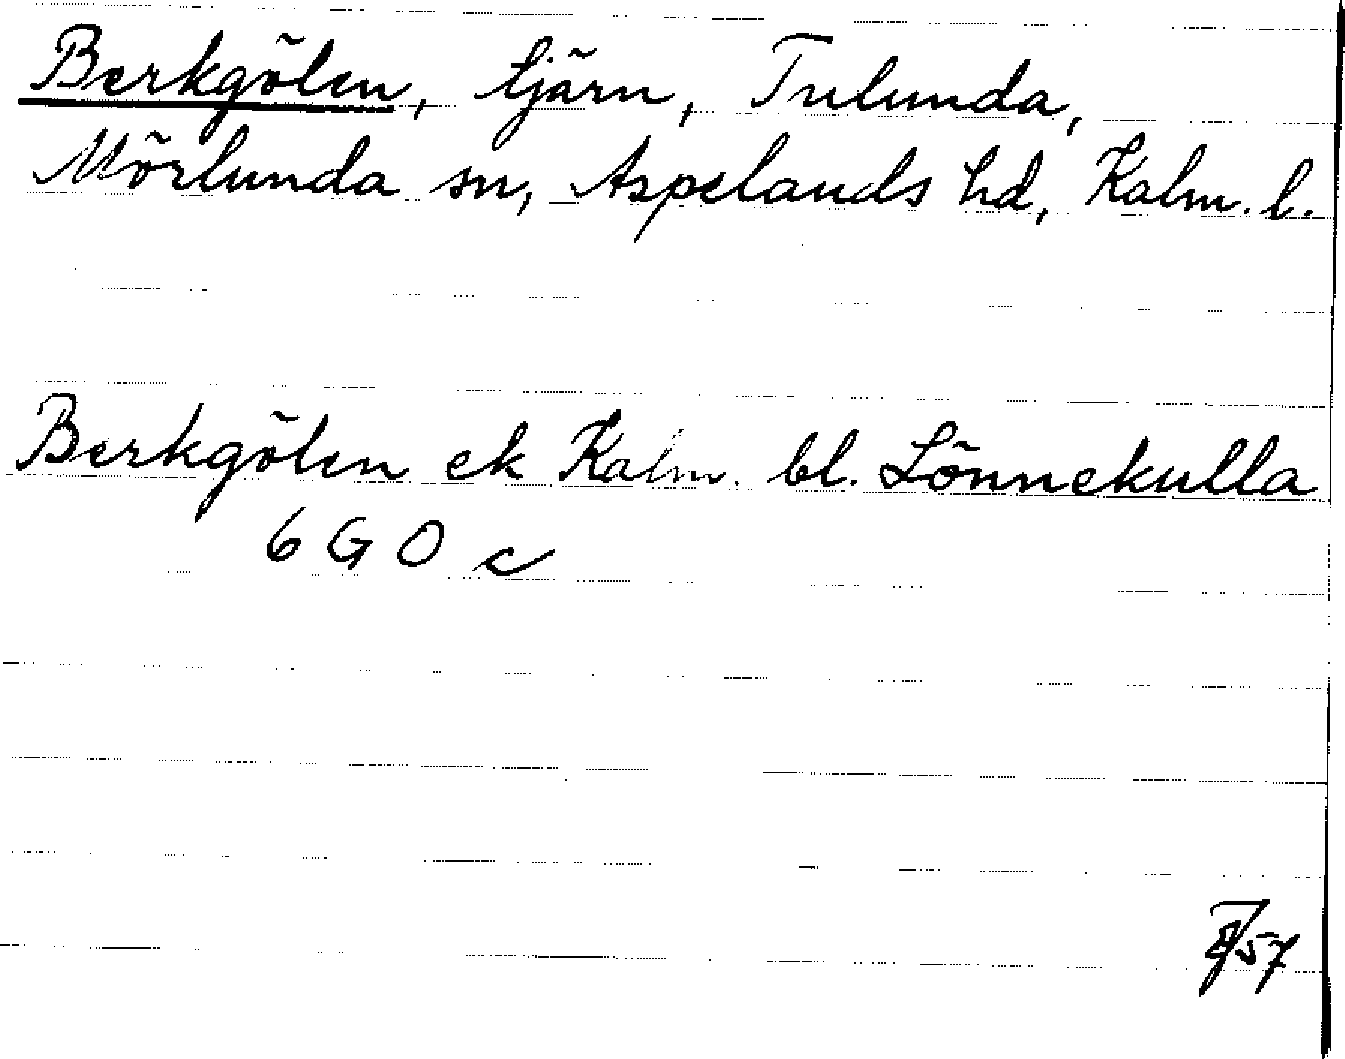 Berkgölen, tjärn, Tulunda,
Mörlunda sn, Aspelands hd, Kalm. l.
Berkgölen ek Kalm. bl. Lönnekulla
6 G 0 c